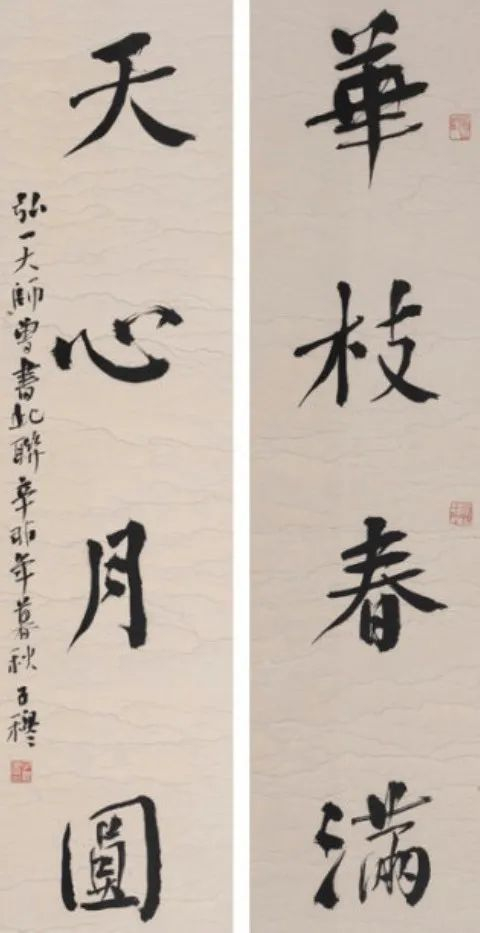 華枝春滿
天心月圓
弘一大師曾書此聯辛卯年暮秋子穆